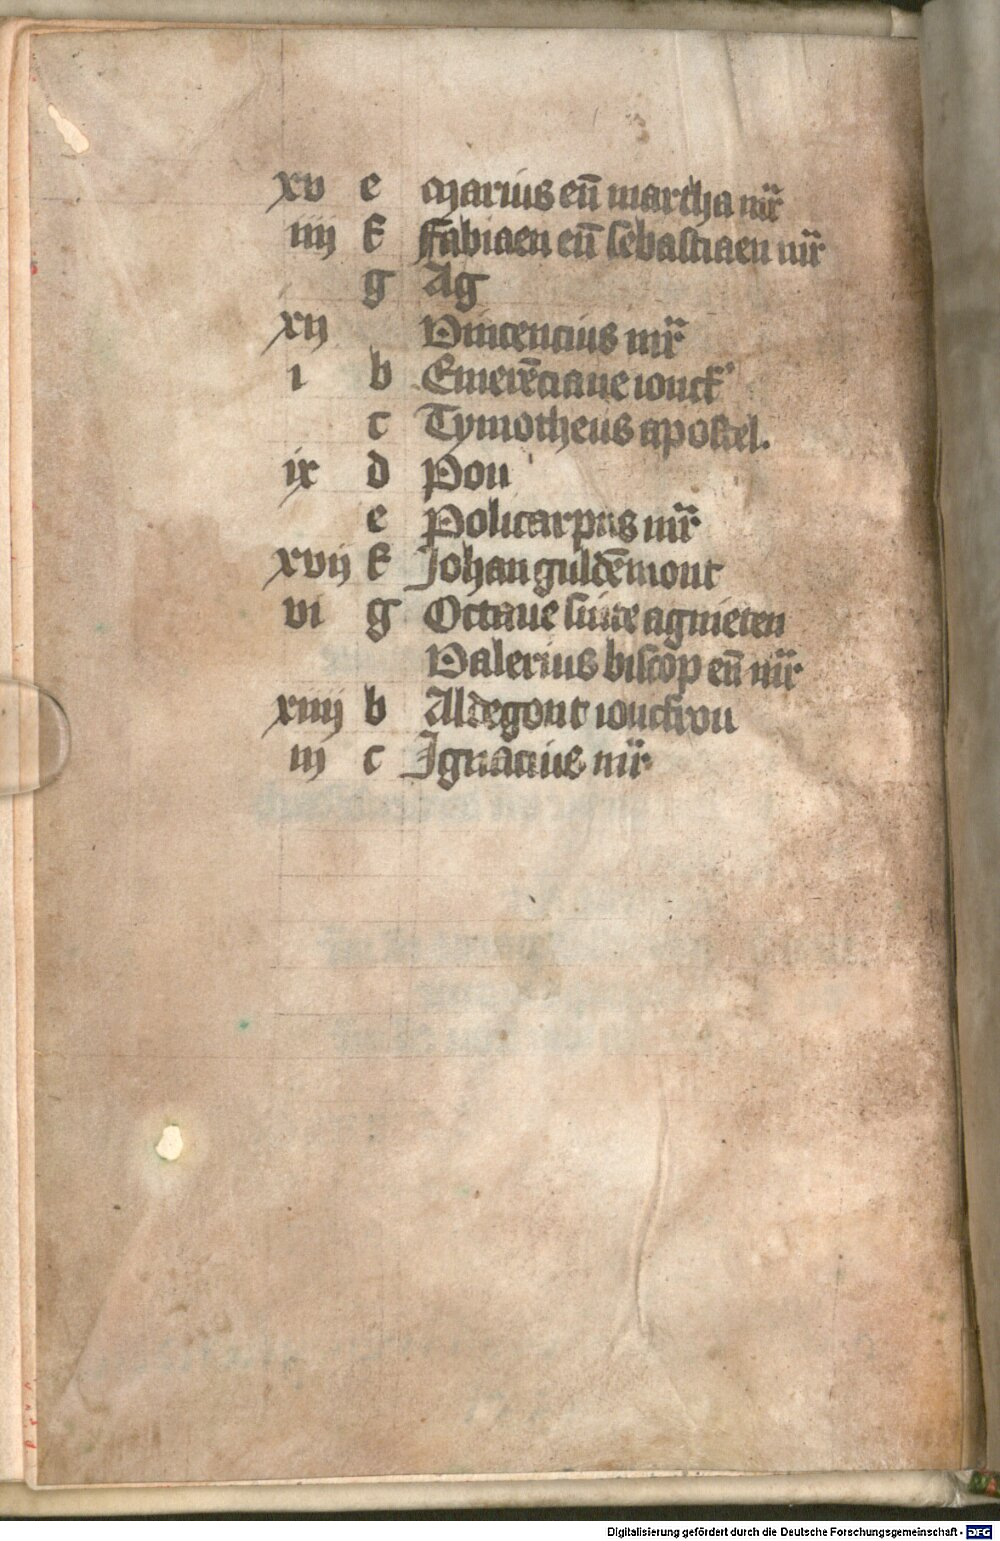 xv e Marius en̄ martha mr̄
iiij f Fabiaen en̄ sebastiaen mr̄
g Ag
xij Vincencius mr̄
i b Emerēciane ionck'
c Tymotheus apostel.
ix d Pou
e Policarpus mr̄
xvij f Johan guldēmont
vi g Octaue sūte agnieten
Valerius biscop en̄ mr̄
xiiij b Aldegont ionckfrou
iij c Ignacius mr̄
Digitalisierung gefördert durch die Deutsche Forschungsgemeinschaft - DFG